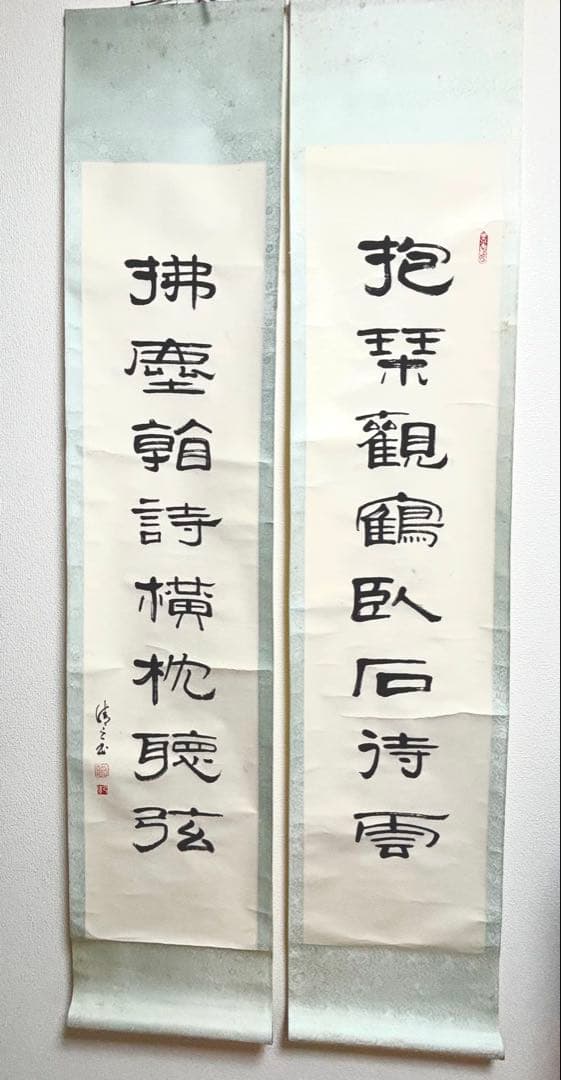 抱琹觀鶴臥石待雲
拂塵翰詩橫枕聽弦